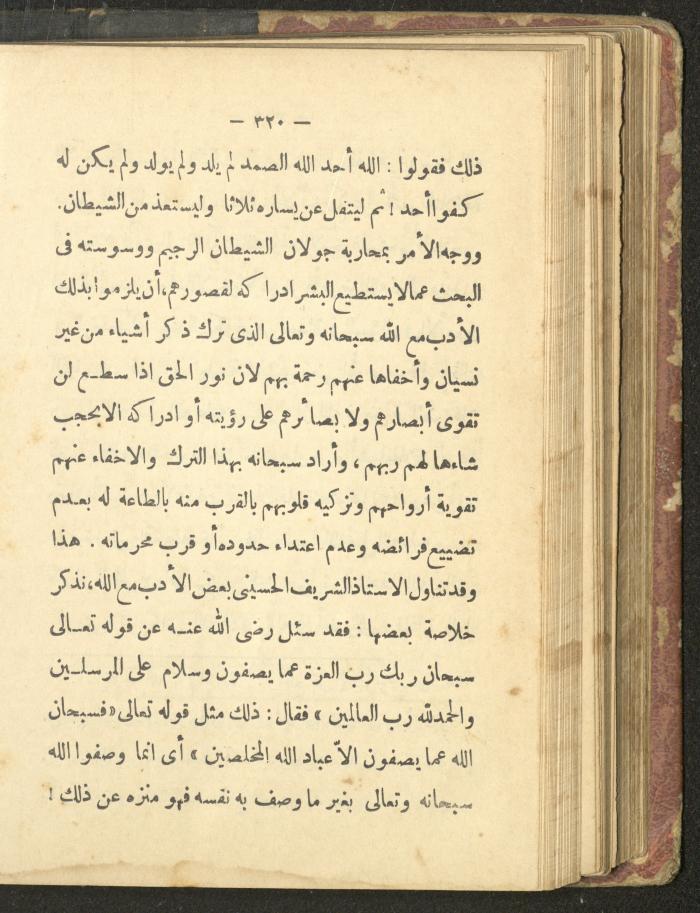 — ٣٢٠ —
ذلك فقولوا : الله أحد الله الصمد لم يلد ولم يولد ولم يكن له
كفوا أحد ! ثم ليتفل عن يساره ثلاثا وليستعذ من الشيطان.
ووجه الأمر بمحاربة جولان الشيطان الرجيم ووسوسته فى
البحث عمالا يستطيع البشر ادراكه لقصورهم، أن يلزموا بذلك
الأدب مع الله سبحانه وتعالى الذى ترك ذكر أشياء من غير
نسيان وأخفاها عنهم رحمة بهم لان نور الحق اذا سطع لن
تقوى أبصارهم ولا بصائرهم على رؤيته أو ادراكه الا بحجب
شاءها لهم ربهم ، وأراد سبحانه بهذا الترك والاخفاء عنهم
تقوية أرواحهم وتزكيه قلوبهم بالقرب منه بالطاعة له بعدم
تضييع فرائضه وعدم اعتداء حدوده أو قرب محرماته . هذا
وقد تناول الاستاذ الشريف الحسينى بعض الأدب مع الله، نذكر
خلاصة بعضها : فقد سئل رضى الله عنه عن قوله تعالى
سبحان ربك رب العزة عما يصفون وسلام على المرسلين
والحمد لله رب العالمين » فقال : ذلك مثل قوله تعالى «فسبحان
الله عما يصفون الاّ عباد الله المخلصين » أى انما وصفوا الله
سبحانه وتعالى بغير ما وصف به نفسه فهو منزه عن ذلك !